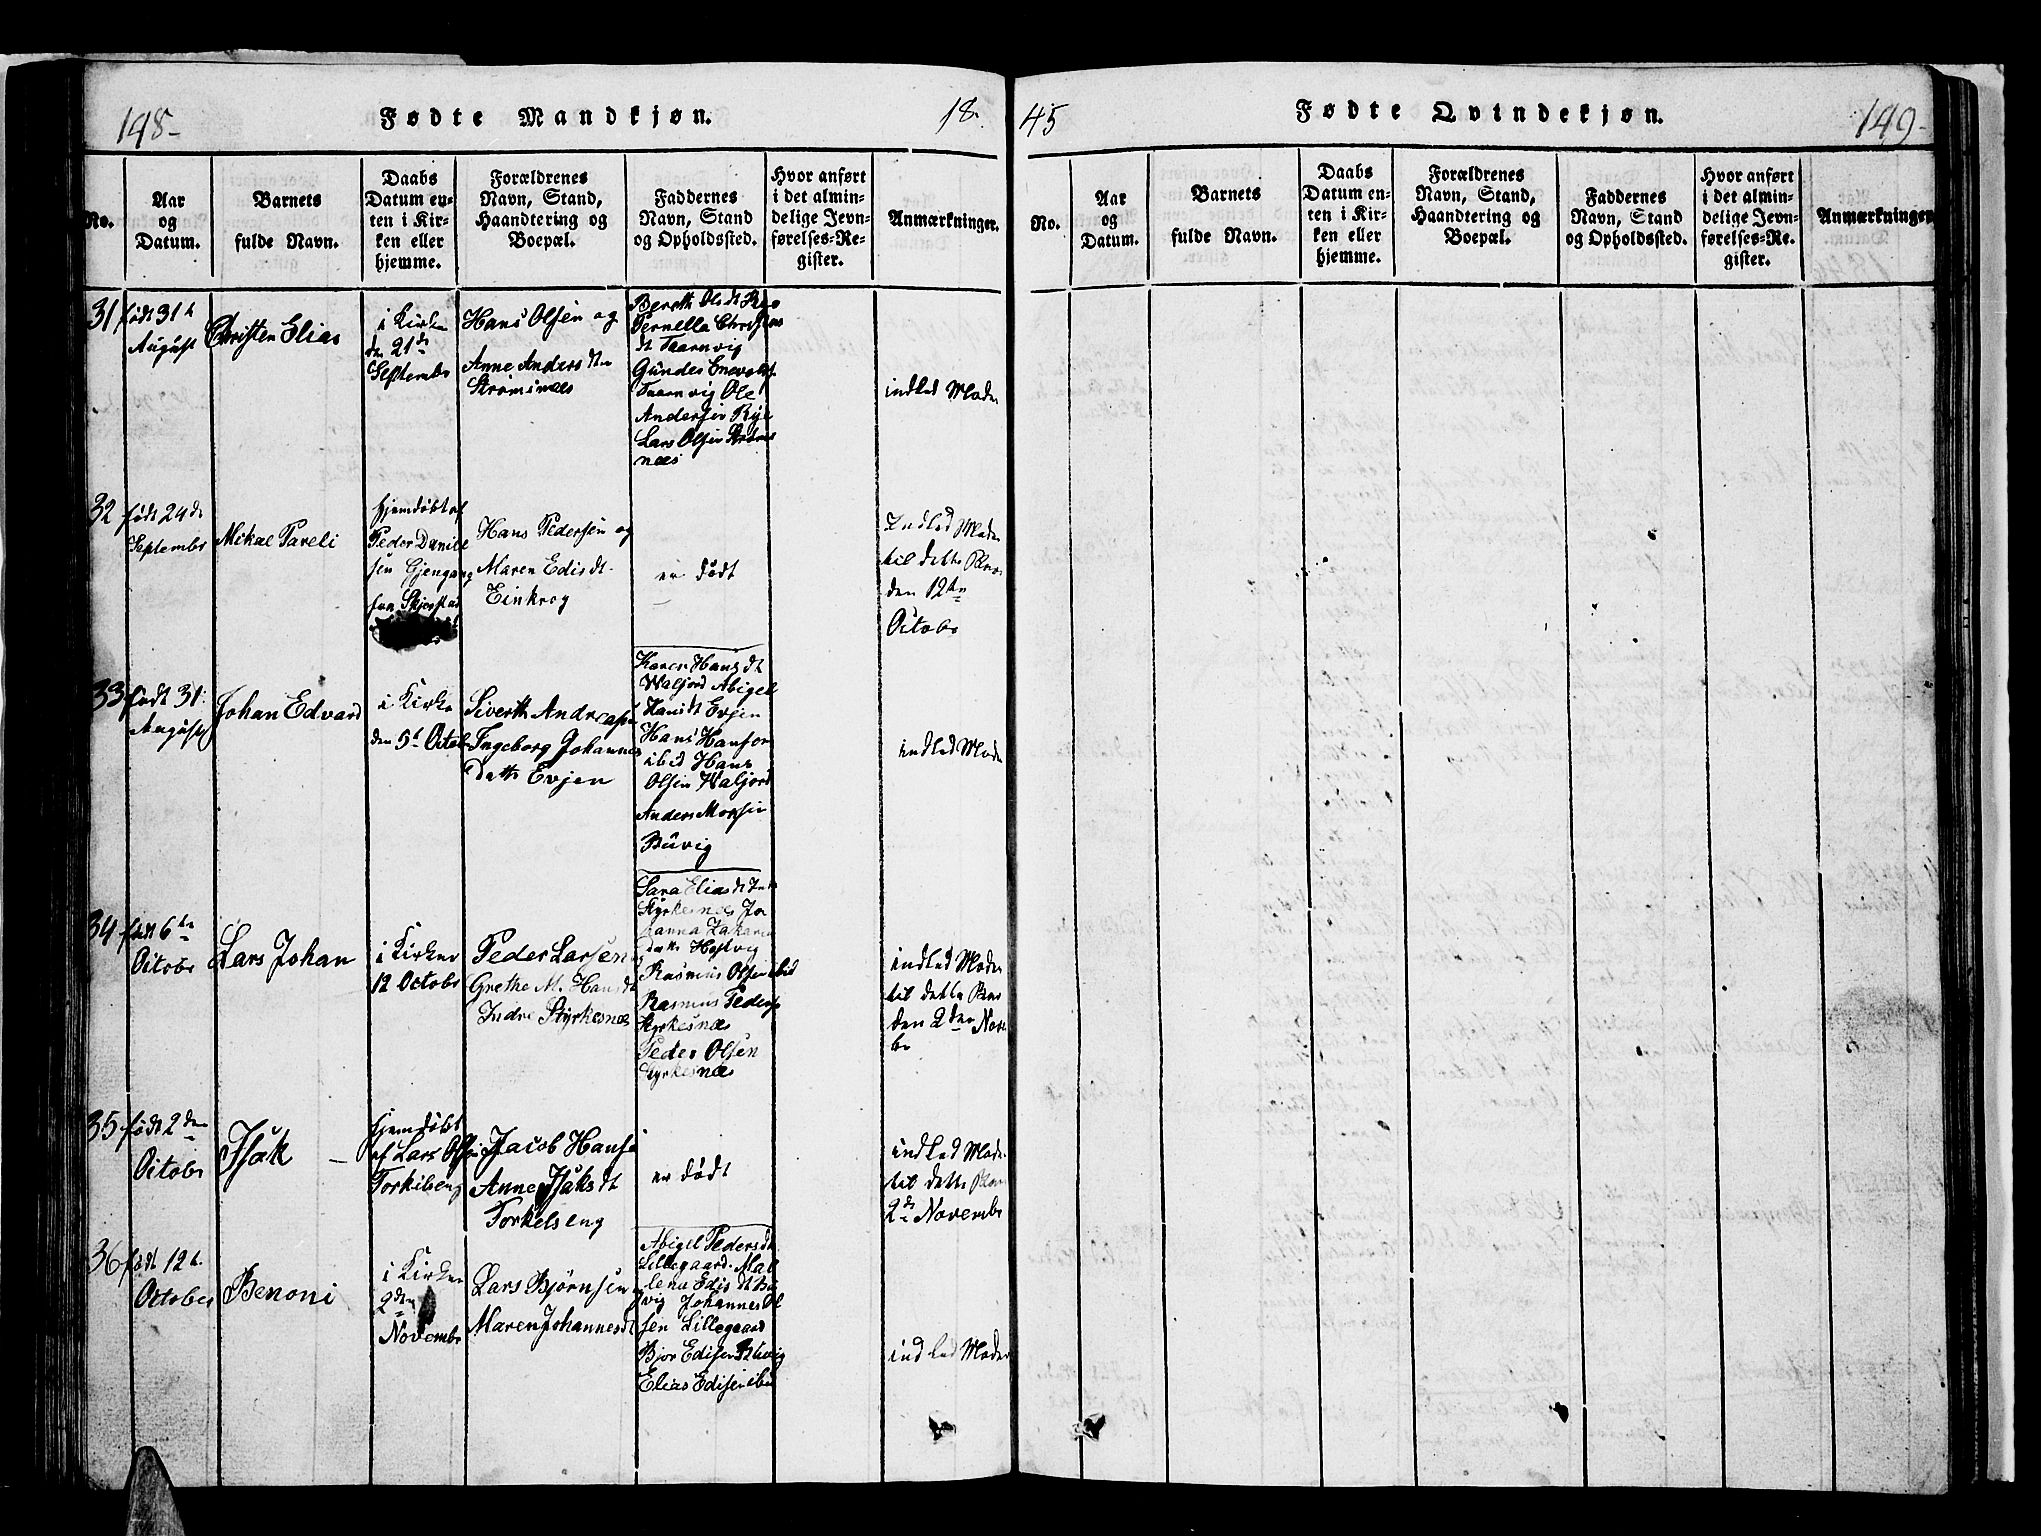 148-
Fødte Mandkjøn.
18.
No.
Aar
og
Datum.
Barnets
fulde Navn.
Daabs
Datum en-
ten i Kir-
ken eller
hjemme.
Forældrenes
Navn, Stand,
Haandtering og
Boepæl.
Faddernes
Navn, Stand
og Opholdssted.
Hvor anført
i det almin-
delige Jevn-
førelses-Re-
gister.
Anmærkninger.
31
født 31t
August
Christen Elias
i Kirken
den 21de
Septembr
Hans Olsen og
Anne Andersdtr
Strömsnæs
Bereth Olsdt
Pernella Christens
dt Taarnvig
Gundes Enevolds
Taarnvig Ole
Andersen
Lars Olsen Ström
næs
indled Moder
32
født 24de
Septembr
Mikal Pareli
hjemdöbt af
Peder Daniel
sen Gjengang
fra Skjerstad
Hans Pedersen og
Maren Edisdt.
Einkrog
er Födt
Indled Moder
til dette Barn
den 12te
Octobr
33
født 31:
August
Johan Edvard
i Kirke
den 5t Octob
Siverth Andreasen
Ingeborg Johannes
Datter Evjen
Karen Hansdt
Waljord Abigel
Hansdt Evjen
Hans Hansen
ibid Hans
Olsen Waljord
Anders Morsen
Büvig
indled Moder
34
født 6te
Octobr
Lars Johan
i Kirken
12 Octobr
Peder Larsen
Grethe M. Hansdt
Indre Styrkesnæs
Sara Eliasdt Indr
Styrkesnæs Jo
hanna Zakarias
datter Hestvig
Rasmus Olsen ibid
Rasmus Peders
Styrkesnæs
Peder Olsen
Styrkesnæs
indled Moder
til dette Barn
den 2den Nove
br
35
født 2den
Octobr
Isak
hjemdöbt
af Lars Olsen
Torkilseng
Jacob Hansen
Anne Isaksdt
Torkelseng
er död
indled Moder
til dette Barn
2de Novembr
36
født 12t.
October
Benoni
i Kirken
2den
Novembr
Lars Björnsen
Maren Johannesdt
Abigel Pedersdt
Lillegaard Mal
lena Edisdt Bü
vig Johannes Ol
sen Lillegaard
Bjor Edisen Büvig
Elias Edisen ibid
indled Moder
45
Fødte Qvindekjøn.
149-
No.
Aar
og
Datum.
Barnets
fulde Navn.
Daabs
Datum en-
ten i Kir-
ken eller
hjemme.
Forældrenes
Navn, Stand,
Haandtering og
Boepæl.
Faddernes
Navn, Stand
og Opholdssted.
Hvor anført
i det almin-
delige Jevn-
førelses-Re-
gister.
Anmærkninger